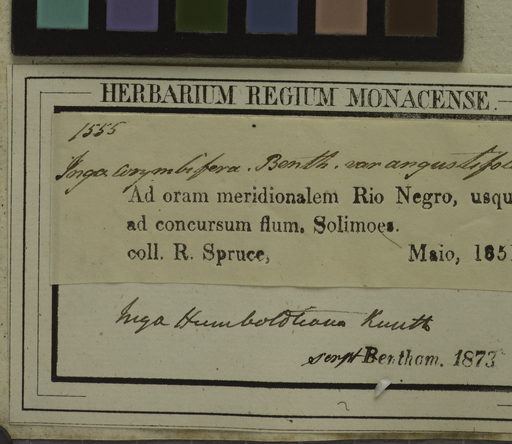 HERBARIUM REGIUM MONACENSE.
1555
Inga corymbifera. Benth. var angustifol
Ad oram meridionalem Rio Negro, usqu
ad concursum flum. Solimoes.
coll. R. Spruce, Maio, 1851
Inga Humboldtiana Kunth
scrpt Bentham. 1873